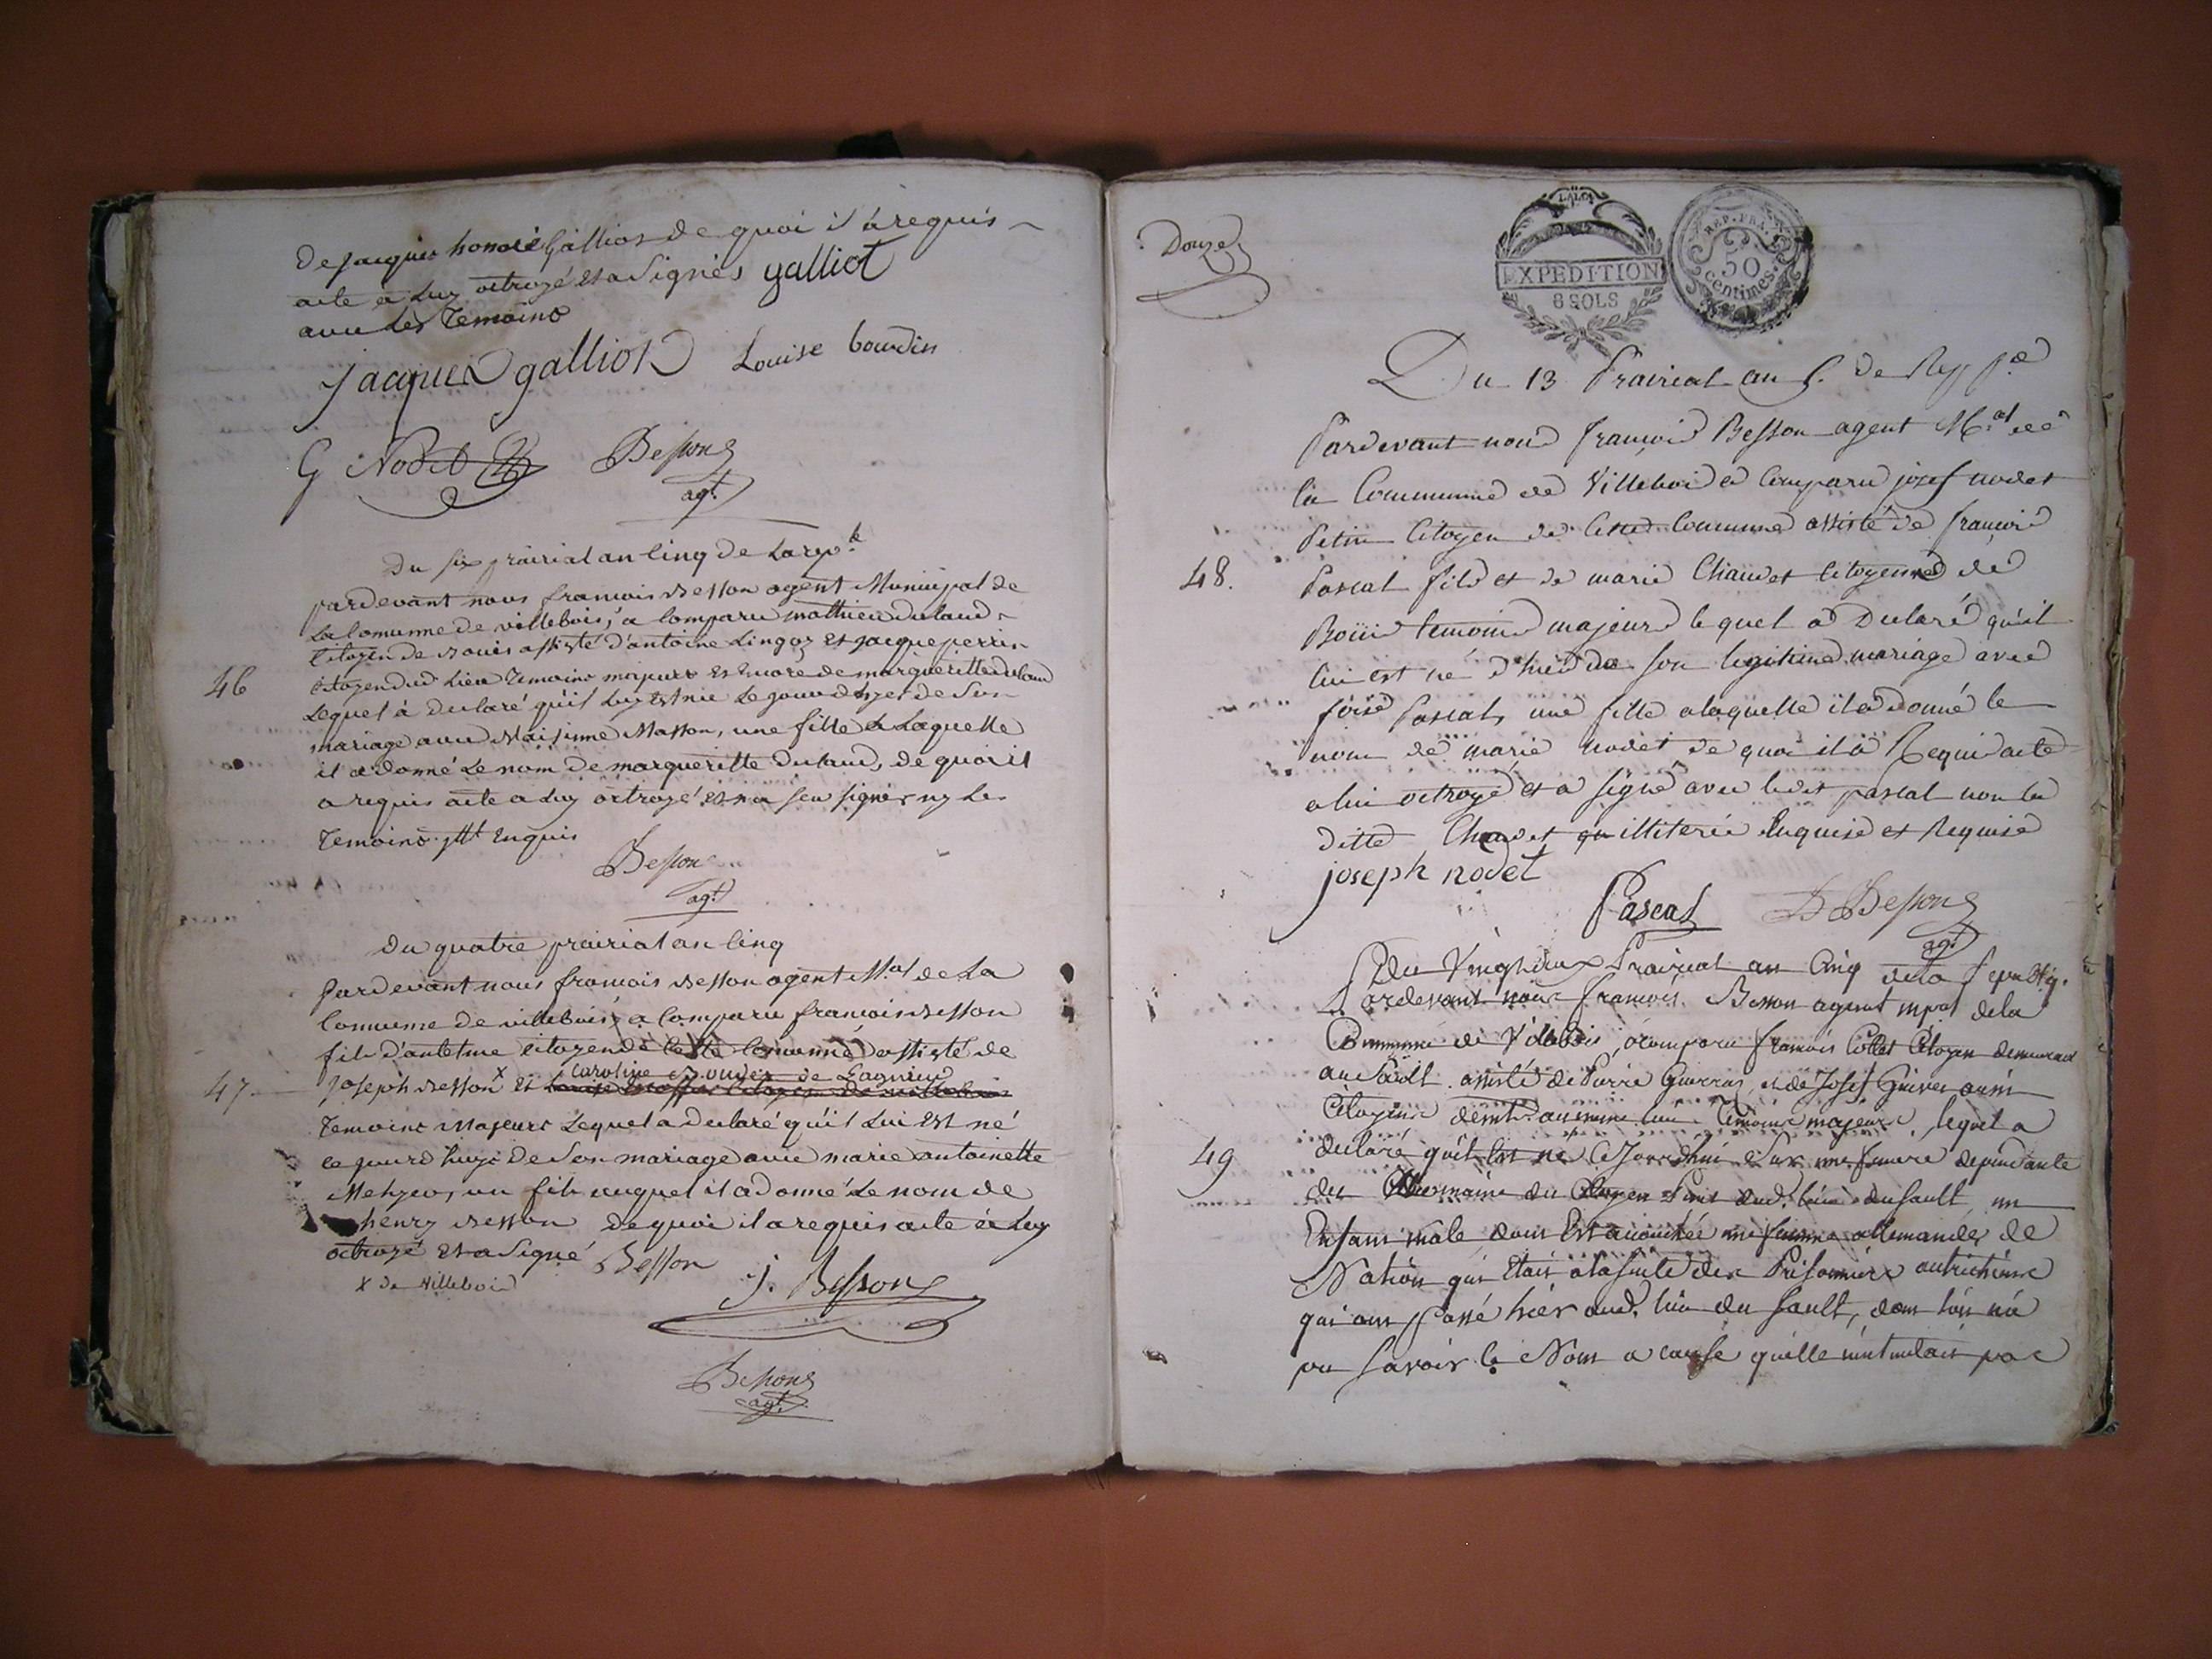 De jacques honoré Galliot de quoi il à requis
acte à luy octroyé et a Signés galliot
avec les Temoins
jacques galliot Louise bourdin
G Nodet Besson
agt.
Du six prairial an cinq de La rep.
pardevant nous francois Besson agent Municipal de
La Comunne de villebois, a comparu mathieu dulaud
Citoyen de Bouis assisté d'antoine Lingoz et jacque perrin
46 citoyen dud Lieu Temoins majeurs et encore de margueritte dulaud
Lequel à declaré qu'il Luy est née Le jourd'huy de Son
mariage avec Masson, une fille à Laquelle
il a donné Le nom de margueritte dulaud, de quoi il
a requis acte a Luy octroyé et n'a seu signer ny Les
Temoins Enquis
Besson
agt.
Du quatre prairial an cinq
Pardevant nous francois Besson agent M.al de La
Comunne de villebois, a comparu francois Besson
fils d'antelme citoyen de cette Comunne assisté de
Caroline de Lagnieu
47 Joseph Besson x et
Temoins Majeurs Lequel a declaré qu'il Lui est né
ce jourd'huy de Son mariage avec marie antoinette
un fils auquel il a donné Le nom de
henry Besson de quoi il a requis acte à Luy
octroyé et a Signé Besson
x de Villebois J. Besson
Besson
agt.
Douze
LA LOI
EXPEDITION
8 SOLS
REP. FRA.
50
Centimes.
Du 13 Prairial an 5. de Rep
Pardevant nous françois Besson agent M.al de
la Communne de Villebois a Comparu josef nodet
Citoyen de Cette Commune assisté de francois
48. Pascal fils et de marie Chaudet Citoyenne de
Boüis temoins majeurs lequel a Declaré qu'il
lui est né d'hier de son legitime mariage avec
Pascal, une fille a laquelle il a donné le
nom de marie nodet de quoi il a Requis acte
a lui octroyé et a signé avec ledit pascal non la
ditte Chaudet illiterée Enquise et Requise
joseph nodet
Pascal Besson
agt
Du Vingt deux Prairial an Cinq de la Republiq.
Pardevant nous francois Besson agent mpal de la
Commune de Villebois, a comparu francois Collet Citoyen demeurant
au Sault assisté de Pierre et de Josef aussi
Citoyens demt. au meme lieu Temoins majeurs, lequel a
49 declaré qu'il est né Cejourdhui dans une dependante
du Domaine du Citoyen dud. lieu du Sault, un
Enfant male, dont Est accouchée une femme allemandes de
Nation qui Etais à la suite des Prisonniers autrichiens
qui ont passé hier aud. lieu du Sault, dont l'on n'a
pu savoir le Nom a cause qu'elle n'entendais pas